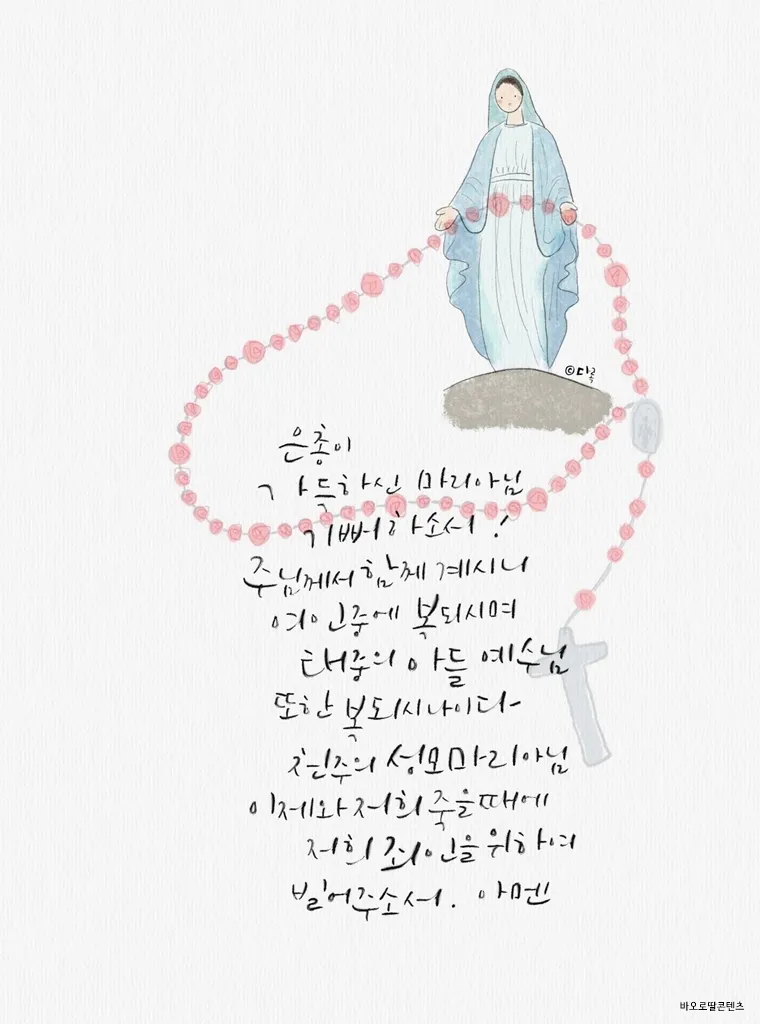 ©다록
은총이
가득하신 마리아님
기뻐하소서!
주님께서 함께 계시니
여인중에 복되시며
태중의 아들 예수님
또한 복되시나이다
천주의 성모마리아님
이제와 저희 죽을때에
저희 죄인을 위하여
빌어주소서. 아멘
바오로딸콘텐츠